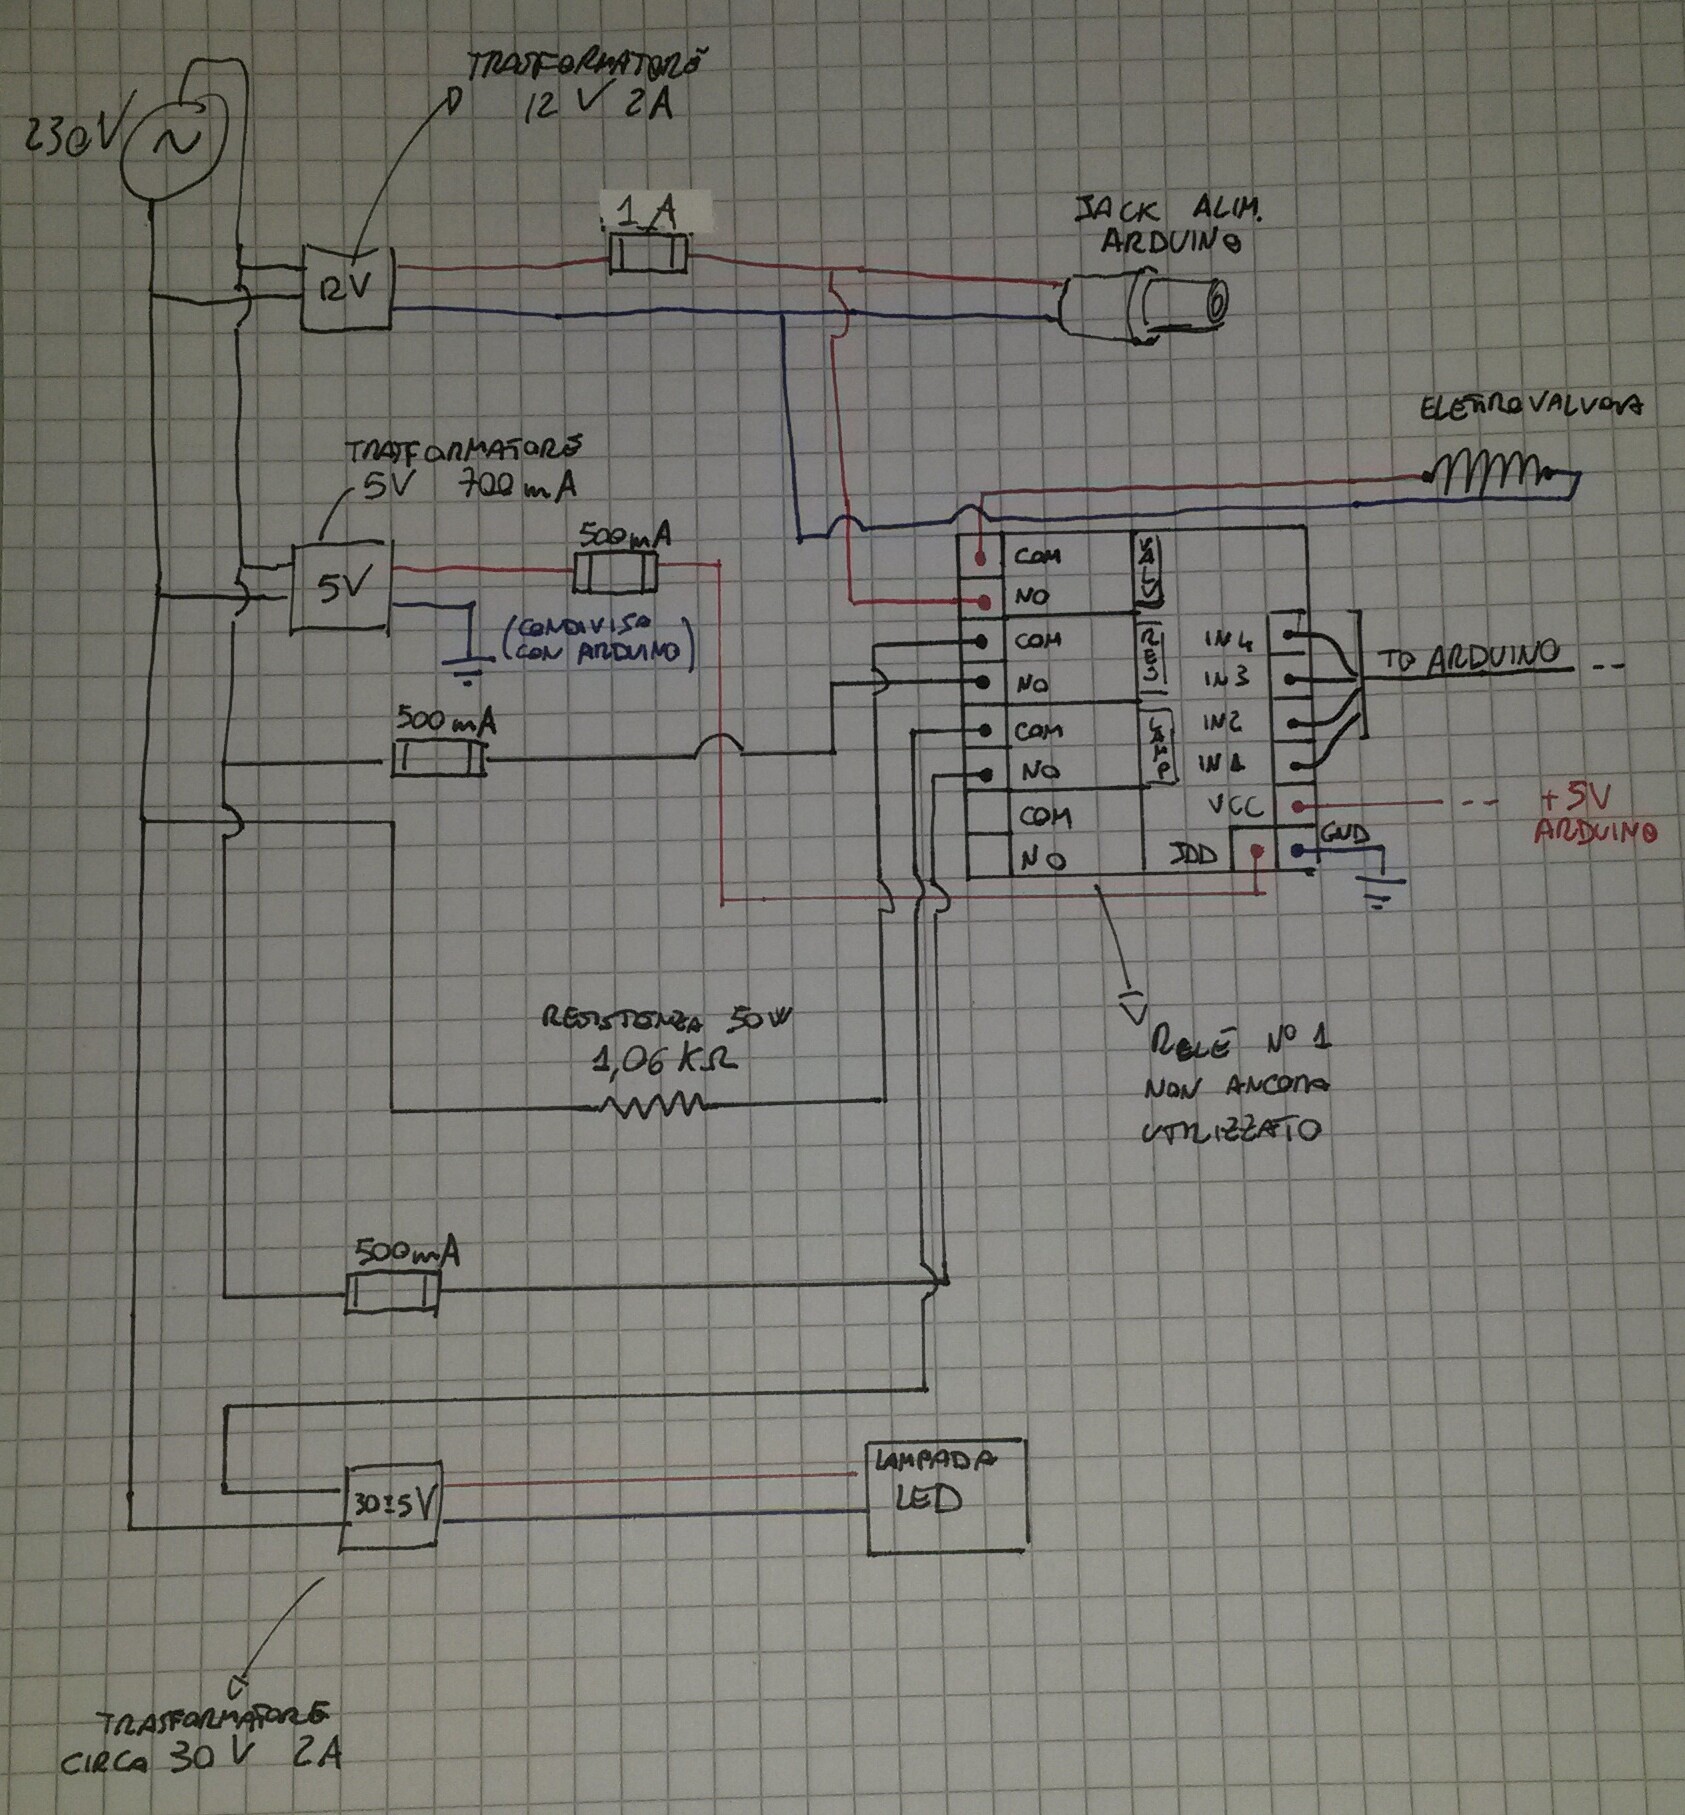 TRASFORMATORE
12 V 2A
230V
1 A
JACK ALIM.
ARDUINO
12V
ELETTROVALVOLA
TRASFORMATORE
5V 700mA
500mA
5V
(CONDIVISO
CON ARDUINO)
COM
NO
VALV
COM
NO
RES
COM
NO
LAMP
COM
NO
IN4
IN3
IN2
IN1
VCC
JDD
GND
TO ARDUINO
+5V
ARDUINO
500mA
RESISTENZA 50W
1,06 KΩ
RELÈ N° 1
NON ANCORA
UTILIZZATO
500mA
30±5V
LAMPADA
LED
TRASFORMATORE
CIRCA 30 V 2A